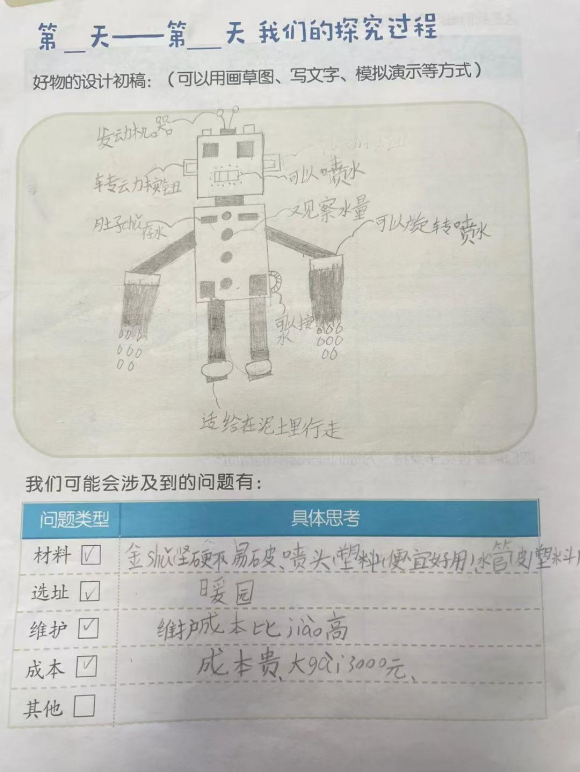 第__天——第__天 我们的探究过程
好物的设计初稿：（可以用画草图、写文字、模拟演示等方式）
发动机器
转云力按钮
可以喷水
肚子里存水
观察水量
可以旋转喷水
可以接水
适给在泥土里行走
我们可能会涉及到的问题有：
问题类型 具体思考
材料 金shǔ坚硬不易破、喷头（塑料）（便宜好用）水管（皮/塑料）
选址 暖园
维护 维护成本比jiào高
成本 成本贵、大gài3000元、
其他